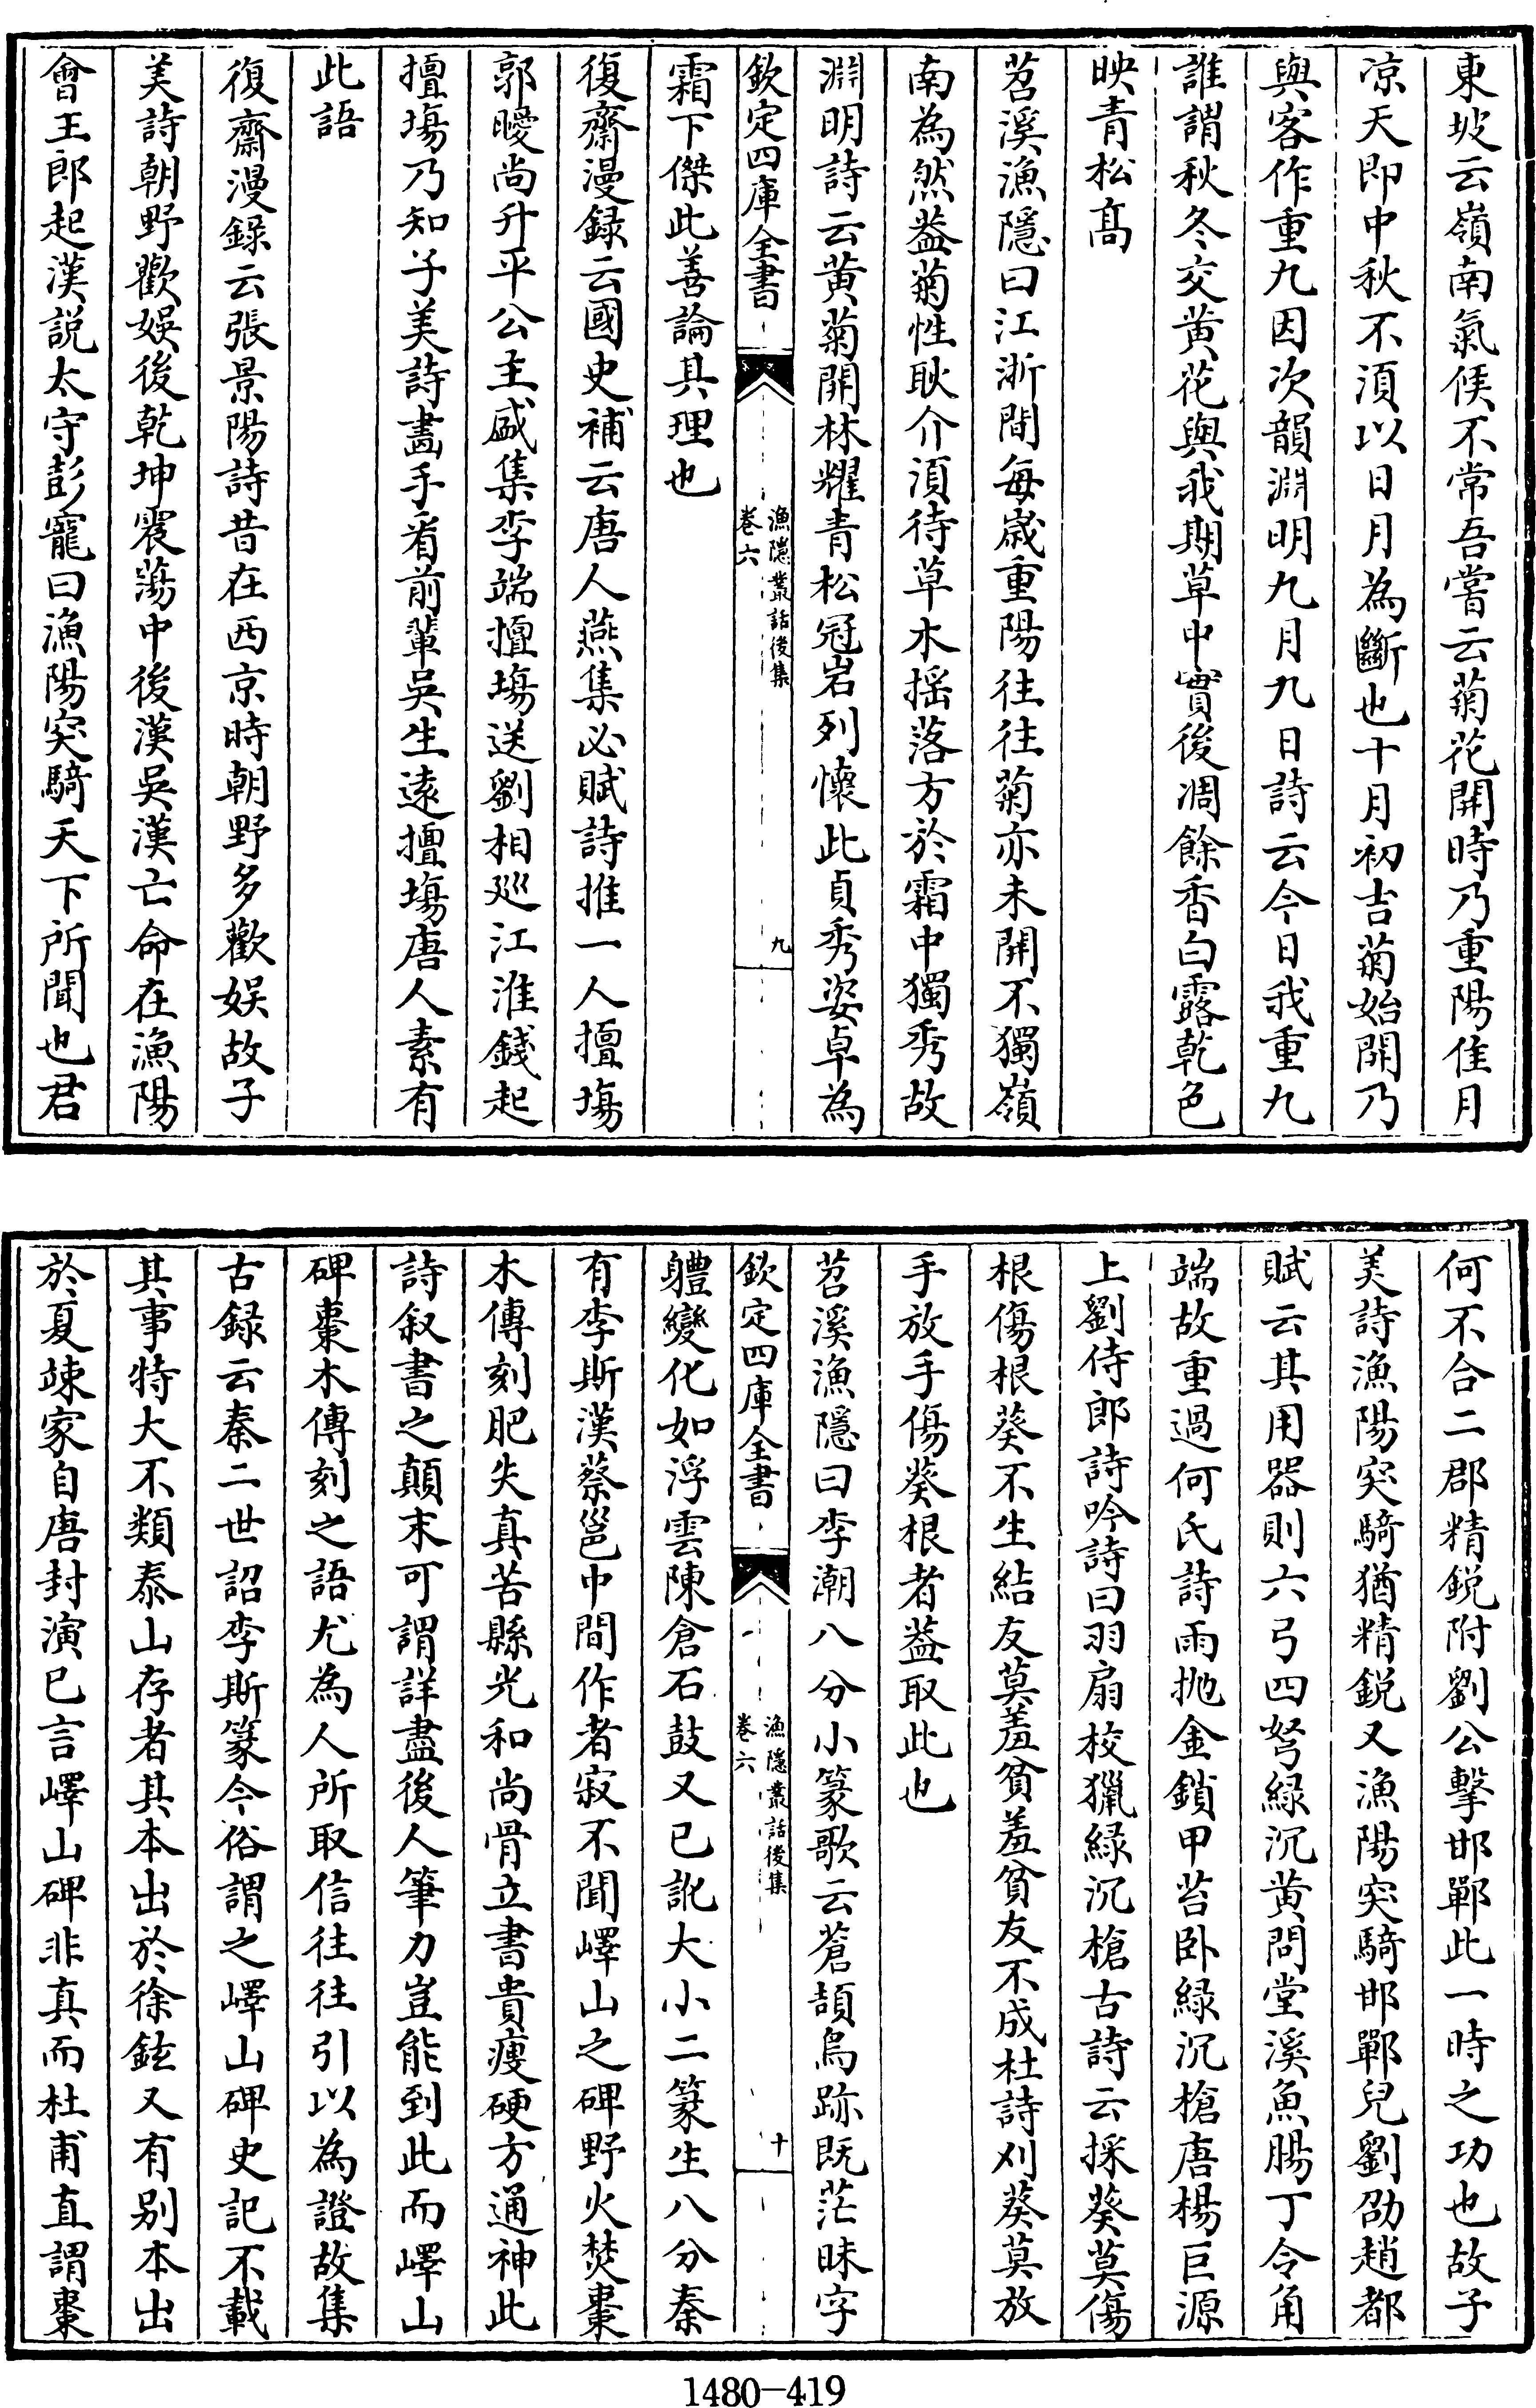 東坡云嶺南氣候不常吾嘗云菊花開時乃重陽佳月
凉天即中秋不須以日月為斷也十月初吉菊始開乃
與客作重九因次韻淵明九月九日詩云今日我重九
誰謂秋冬交黄花與我期草中實後凋餘香白露乾色
映青松髙
苕溪漁隱曰江浙間每嵗重陽往往菊亦未開不獨嶺
南為然葢菊性耿介須待草木揺落方於霜中獨秀故
淵明詩云黄菊開林耀青松冠岩列懷此貞秀姿卓為
欽定四庫全書
漁隱叢話後集
卷六
九
霜下傑此善論其理也
復齋漫録云國史補云唐人燕集必賦詩推一人擅塲
郭曖尚升平公主盛集李端擅塲送劉相廵江淮錢起
擅塲乃知子美詩畵手㸔前輩吳生逺擅塲唐人素有
此語
復齋漫録云張景陽詩昔在西京時朝野多歡娱故子
美詩朝野歡娱後乾坤震蕩中後漢吳漢亡命在漁陽
會王郎起漢説太守彭寵曰漁陽突騎天下所聞也君
何不合二郡精鋭附劉公擊邯鄲此一時之功也故子
美詩漁陽突騎猶精鋭又漁陽突騎邯鄲兒劉劭趙都
賦云其用器則六弓四弩緑沉黄問堂溪魚腸丁令角
端故重過何氏詩雨抛金鎖甲苔卧緑沉槍唐楊巨源
上劉侍郎詩吟詩曰羽扇校獵緑沉槍古詩云採葵莫傷
根傷根葵不生結友莫羞貧羞貧友不成杜詩刈葵莫放
手放手傷葵根者葢取此也
苕溪漁隱曰李潮八分小篆歌云蒼頡鳥跡既茫昧字
欽定四庫全書
漁隱叢話後集
卷六
十
軆變化如浮雲陳倉石鼓又已訛大小二篆生八分秦
有李斯漢蔡邕中間作者寂不聞嶧山之碑野火焚棗
木傳刻肥失真苦縣光和尚骨立書貴瘦硬方通神此
詩叙書之顛末可謂詳盡後人筆力豈能到此而嶧山
碑棗木傳刻之語尤為人所取信往往引以為證故集
古録云秦二世詔李斯篆今俗謂之嶧山碑史記不載
其事特大不類泰山存者其本出於徐鉉又有别本出
於夏竦家自唐封演已言嶧山碑非真而杜甫直謂棗
1480-419